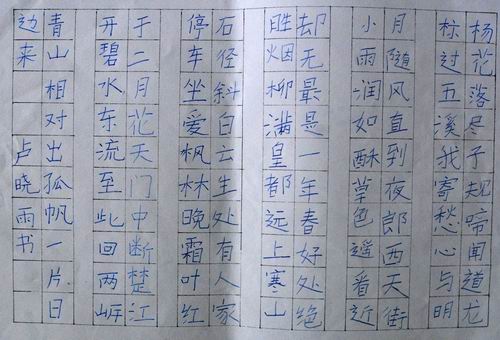 杨花落尽子规啼闻道龙
标过五溪我寄愁心与明
月随风直到夜郎西天街
小雨润如酥草色遥看近
却无最是一年春好处绝
胜烟柳满皇都远上寒山
石径斜白云生处有人家
停车坐爱枫林晚霜叶红
于二月花天门中断楚江
开碧水东流至此回两岸
青山相对出孤帆一片日
边来 卢晓雨书